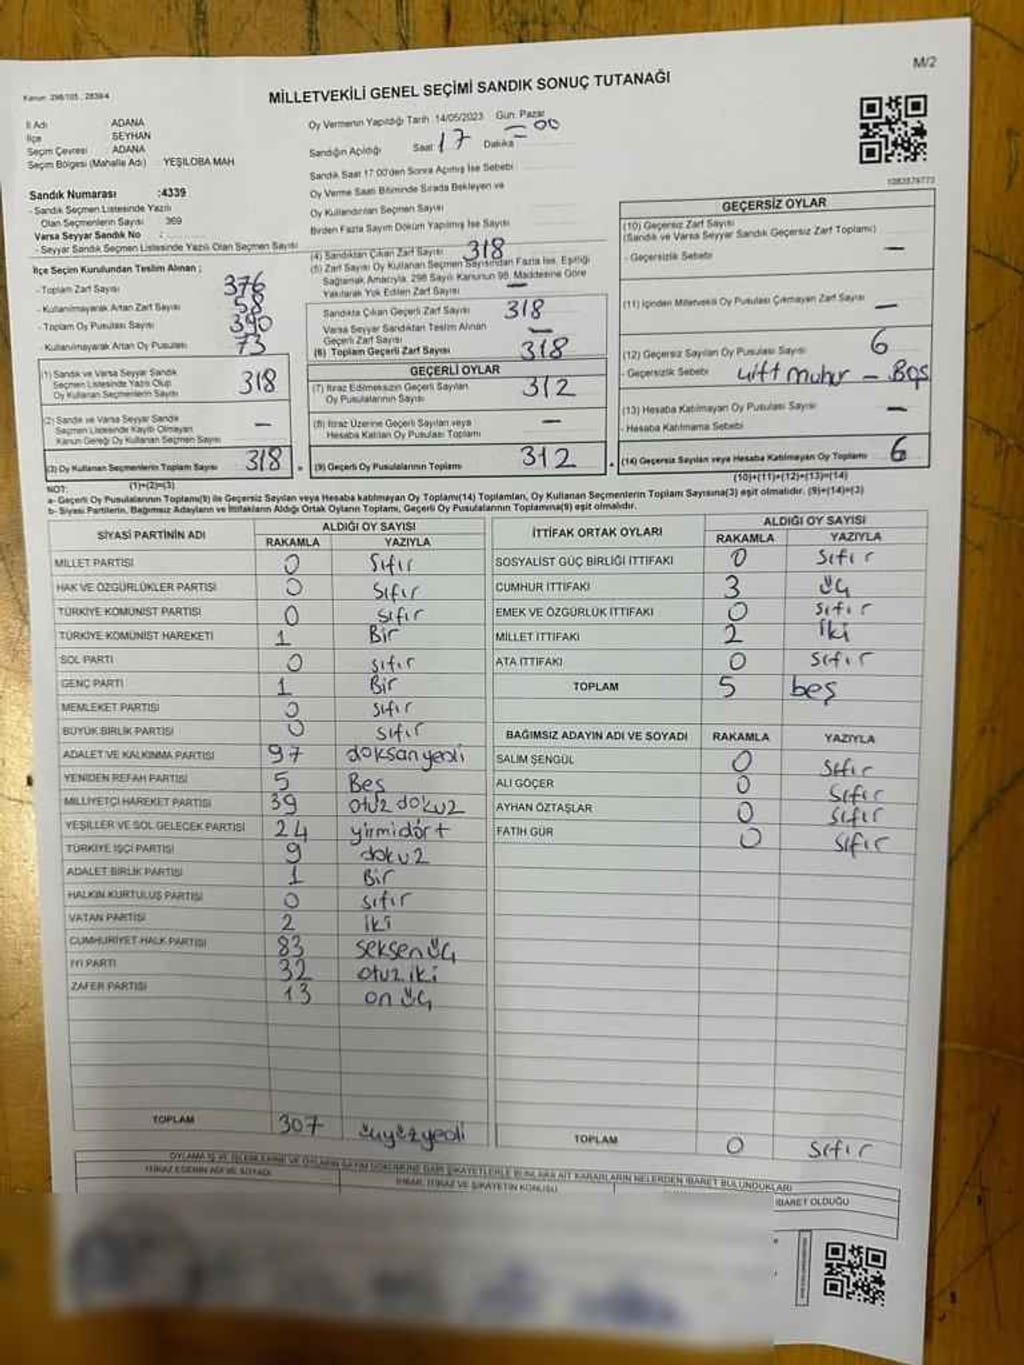 M/2
Kanun: 298/105 , 2839/4
MİLLETVEKİLİ GENEL SEÇİMİ SANDIK SONUÇ TUTANAĞI
İl Adı ADANA
İlçe SEYHAN
Seçim Çevresi ADANA
Seçim Bölgesi (Mahalle Adı) YEŞİLOBA MAH
Sandık Numarası :4339
- Sandık Seçmen Listesinde Yazılı
Olan Seçmenlerin Sayısı 369
Varsa Seyyar Sandık No :
- Seyyar Sandık Seçmen Listesinde Yazılı Olan Seçmen Sayısı
İlçe Seçim Kurulundan Teslim Alınan ;
- Toplam Zarf Sayısı 376
- Kullanılmayarak Artan Zarf Sayısı 58
- Toplam Oy Pusulası Sayısı 390
- Kullanılmayarak Artan Oy Pusulası 73
(1) Sandık ve Varsa Seyyar Sandık
Seçmen Listesinde Yazılı Olup
Oy Kullanan Seçmenlerin Sayısı 318
(2) Sandık ve Varsa Seyyar Sandık
Seçmen Listesinde Kayıtlı Olmayan
Kanun Gereği Oy Kullanan Seçmen Sayısı —
(3) Oy Kullanan Seçmenlerin Toplam Sayısı 318
(1)+(2)=(3)
Oy Vermenin Yapıldığı Tarih 14/05/2023 Gün: Pazar
Sandığın Açıldığı Saat 17 Dakika 00
Sandık Saat 17:00'den Sonra Açılmış İse Sebebi
Oy Verme Saati Bitiminde Sırada Bekleyen ve
Oy Kullandırılan Seçmen Sayısı
Birden Fazla Sayım Döküm Yapılmış İse Sayısı
(4) Sandıktan Çıkan Zarf Sayısı 318
(5) Zarf Sayısı Oy Kullanan Seçmen Sayısından Fazla İse, Eşitliği
Sağlamak Amacıyla, 298 Sayılı Kanunun 98. Maddesine Göre
Yakılarak Yok Edilen Zarf Sayısı —
Sandıkta Çıkan Geçerli Zarf Sayısı 318
Varsa Seyyar Sandıktan Teslim Alınan
Geçerli Zarf Sayısı —
(6) Toplam Geçerli Zarf Sayısı 318
GEÇERLİ OYLAR
(7) İtiraz Edilmeksizin Geçerli Sayılan
Oy Pusulalarının Sayısı 312
(8) İtiraz Üzerine Geçerli Sayılan veya
Hesaba Katılan Oy Pusulası Toplamı —
(9) Geçerli Oy Pusulalarının Toplamı 312
1083579773
GEÇERSİZ OYLAR
(10) Geçersiz Zarf Sayısı
(Sandık ve Varsa Seyyar Sandık Geçersiz Zarf Toplamı)
- Geçersizlik Sebebi —
(11) İçinden Milletvekili Oy Pusulası Çıkmayan Zarf Sayısı —
(12) Geçersiz Sayılan Oy Pusulası Sayısı 6
- Geçersizlik Sebebi Çift Mühür — Boş
(13) Hesaba Katılmayan Oy Pusulası Sayısı —
- Hesaba Katılmama Sebebi
(14) Geçersiz Sayılan veya Hesaba Katılmayan Oy Toplamı 6
(10)+(11)+(12)+(13)=(14)
NOT:
a- Geçerli Oy Pusulalarının Toplamı(9) ile Geçersiz Sayılan veya Hesaba katılmayan Oy Toplamı(14) Toplamları, Oy Kullanan Seçmenlerin Toplam Sayısına(3) eşit olmalıdır. (9)+(14)=(3)
b- Siyasi Partilerin, Bağımsız Adayların ve İttifakların Aldığı Ortak Oyların Toplamı, Geçerli Oy Pusulalarının Toplamına(9) eşit olmalıdır.
SİYASİ PARTİNİN ADI ALDIĞI OY SAYISI
RAKAMLA YAZIYLA
MİLLET PARTİSİ 0 Sıfır
HAK VE ÖZGÜRLÜKLER PARTİSİ 0 Sıfır
TÜRKİYE KOMÜNİST PARTİSİ 0 Sıfır
TÜRKİYE KOMÜNİST HAREKETİ 1 Bir
SOL PARTİ 0 sıfır
GENÇ PARTİ 1 Bir
MEMLEKET PARTİSİ 0 sıfır
BÜYÜK BİRLİK PARTİSİ 0 sıfır
ADALET VE KALKINMA PARTİSİ 97 doksanyedi
YENİDEN REFAH PARTİSİ 5 Beş
MİLLİYETÇİ HAREKET PARTİSİ 39 otuz dokuz
YEŞİLLER VE SOL GELECEK PARTİSİ 24 yirmidört
TÜRKİYE İŞÇİ PARTİSİ 9 dokuz
ADALET BİRLİK PARTİSİ 1 Bir
HALKIN KURTULUŞ PARTİSİ 0 sıfır
VATAN PARTİSİ 2 iki
CUMHURİYET HALK PARTİSİ 83 seksenüç
İYİ PARTİ 32 otuz iki
ZAFER PARTİSİ 13 on üç
TOPLAM 307 üçyüzyedi
İTTİFAK ORTAK OYLARI ALDIĞI OY SAYISI
RAKAMLA YAZIYLA
SOSYALİST GÜÇ BİRLİĞİ İTTİFAKI 0 Sıfır
CUMHUR İTTİFAKI 3 üç
EMEK VE ÖZGÜRLÜK İTTİFAKI 0 sıfır
MİLLET İTTİFAKI 2 iki
ATA İTTİFAKI 0 sıfır
TOPLAM 5 beş
BAĞIMSIZ ADAYIN ADI VE SOYADI RAKAMLA YAZIYLA
SALİM ŞENGÜL 0 Sıfır
ALİ GÖÇER 0 Sıfır
AYHAN ÖZTAŞLAR 0 sıfır
FATİH GÜR 0 sıfır
TOPLAM 0 sıfır
OYLAMA İŞ VE İŞLEMLERİNE VE OYLARIN SAYIM DÖKÜMÜNE DAİR ŞİKAYETLERLE BUNLARA AİT KARARLARIN NELERDEN İBARET BULUNDUKLARI
İTİRAZ EDENİN ADI VE SOYADI İHBAR, İTİRAZ VE ŞİKAYETİN KONUSU İBARET OLDUĞU